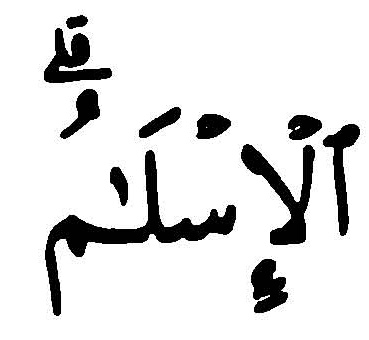 ٱلْإِسْلَـٰمُ ۗ